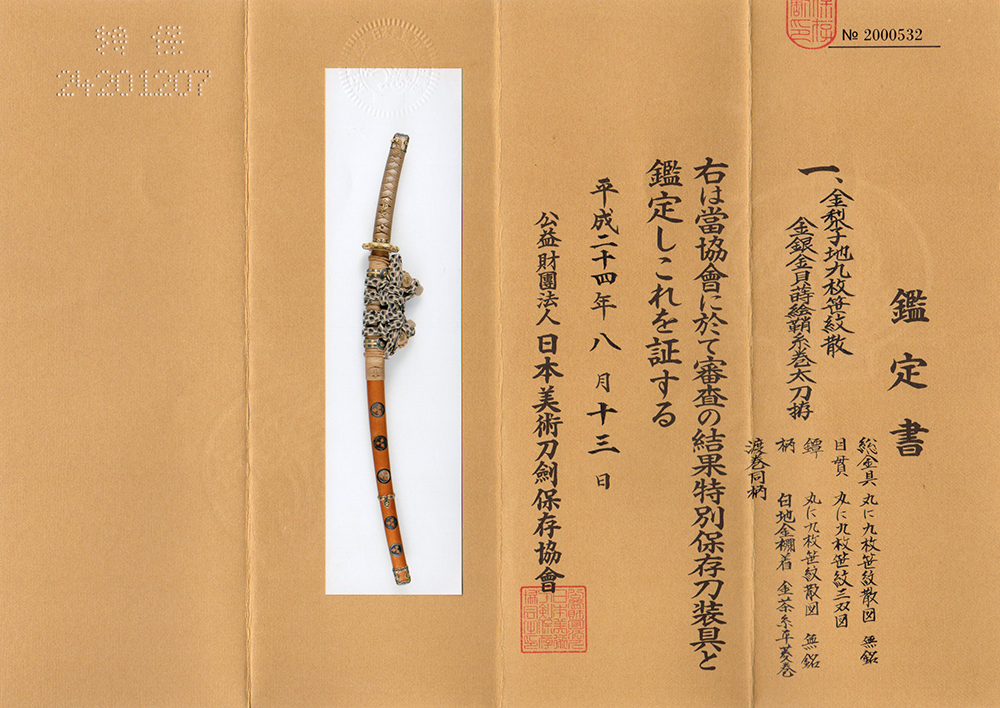 № 2000532
鑑定書
一、金梨子地九枚笹紋散
金銀金貝蒔絵鞘糸巻太刀拵
総金具 丸に九枚笹紋散図 無銘
目貫 丸に九枚笹紋三双図
鐔 丸に九枚笹紋散図 無銘
柄 白地金襴着 金茶糸平菱巻
渡巻同柄
右は當協會に於て審査の結果特別保存刀装具と
鑑定しこれを証する
平成二十四年八月十三日
公益財團法人日本美術刀劍保存協會
24201207